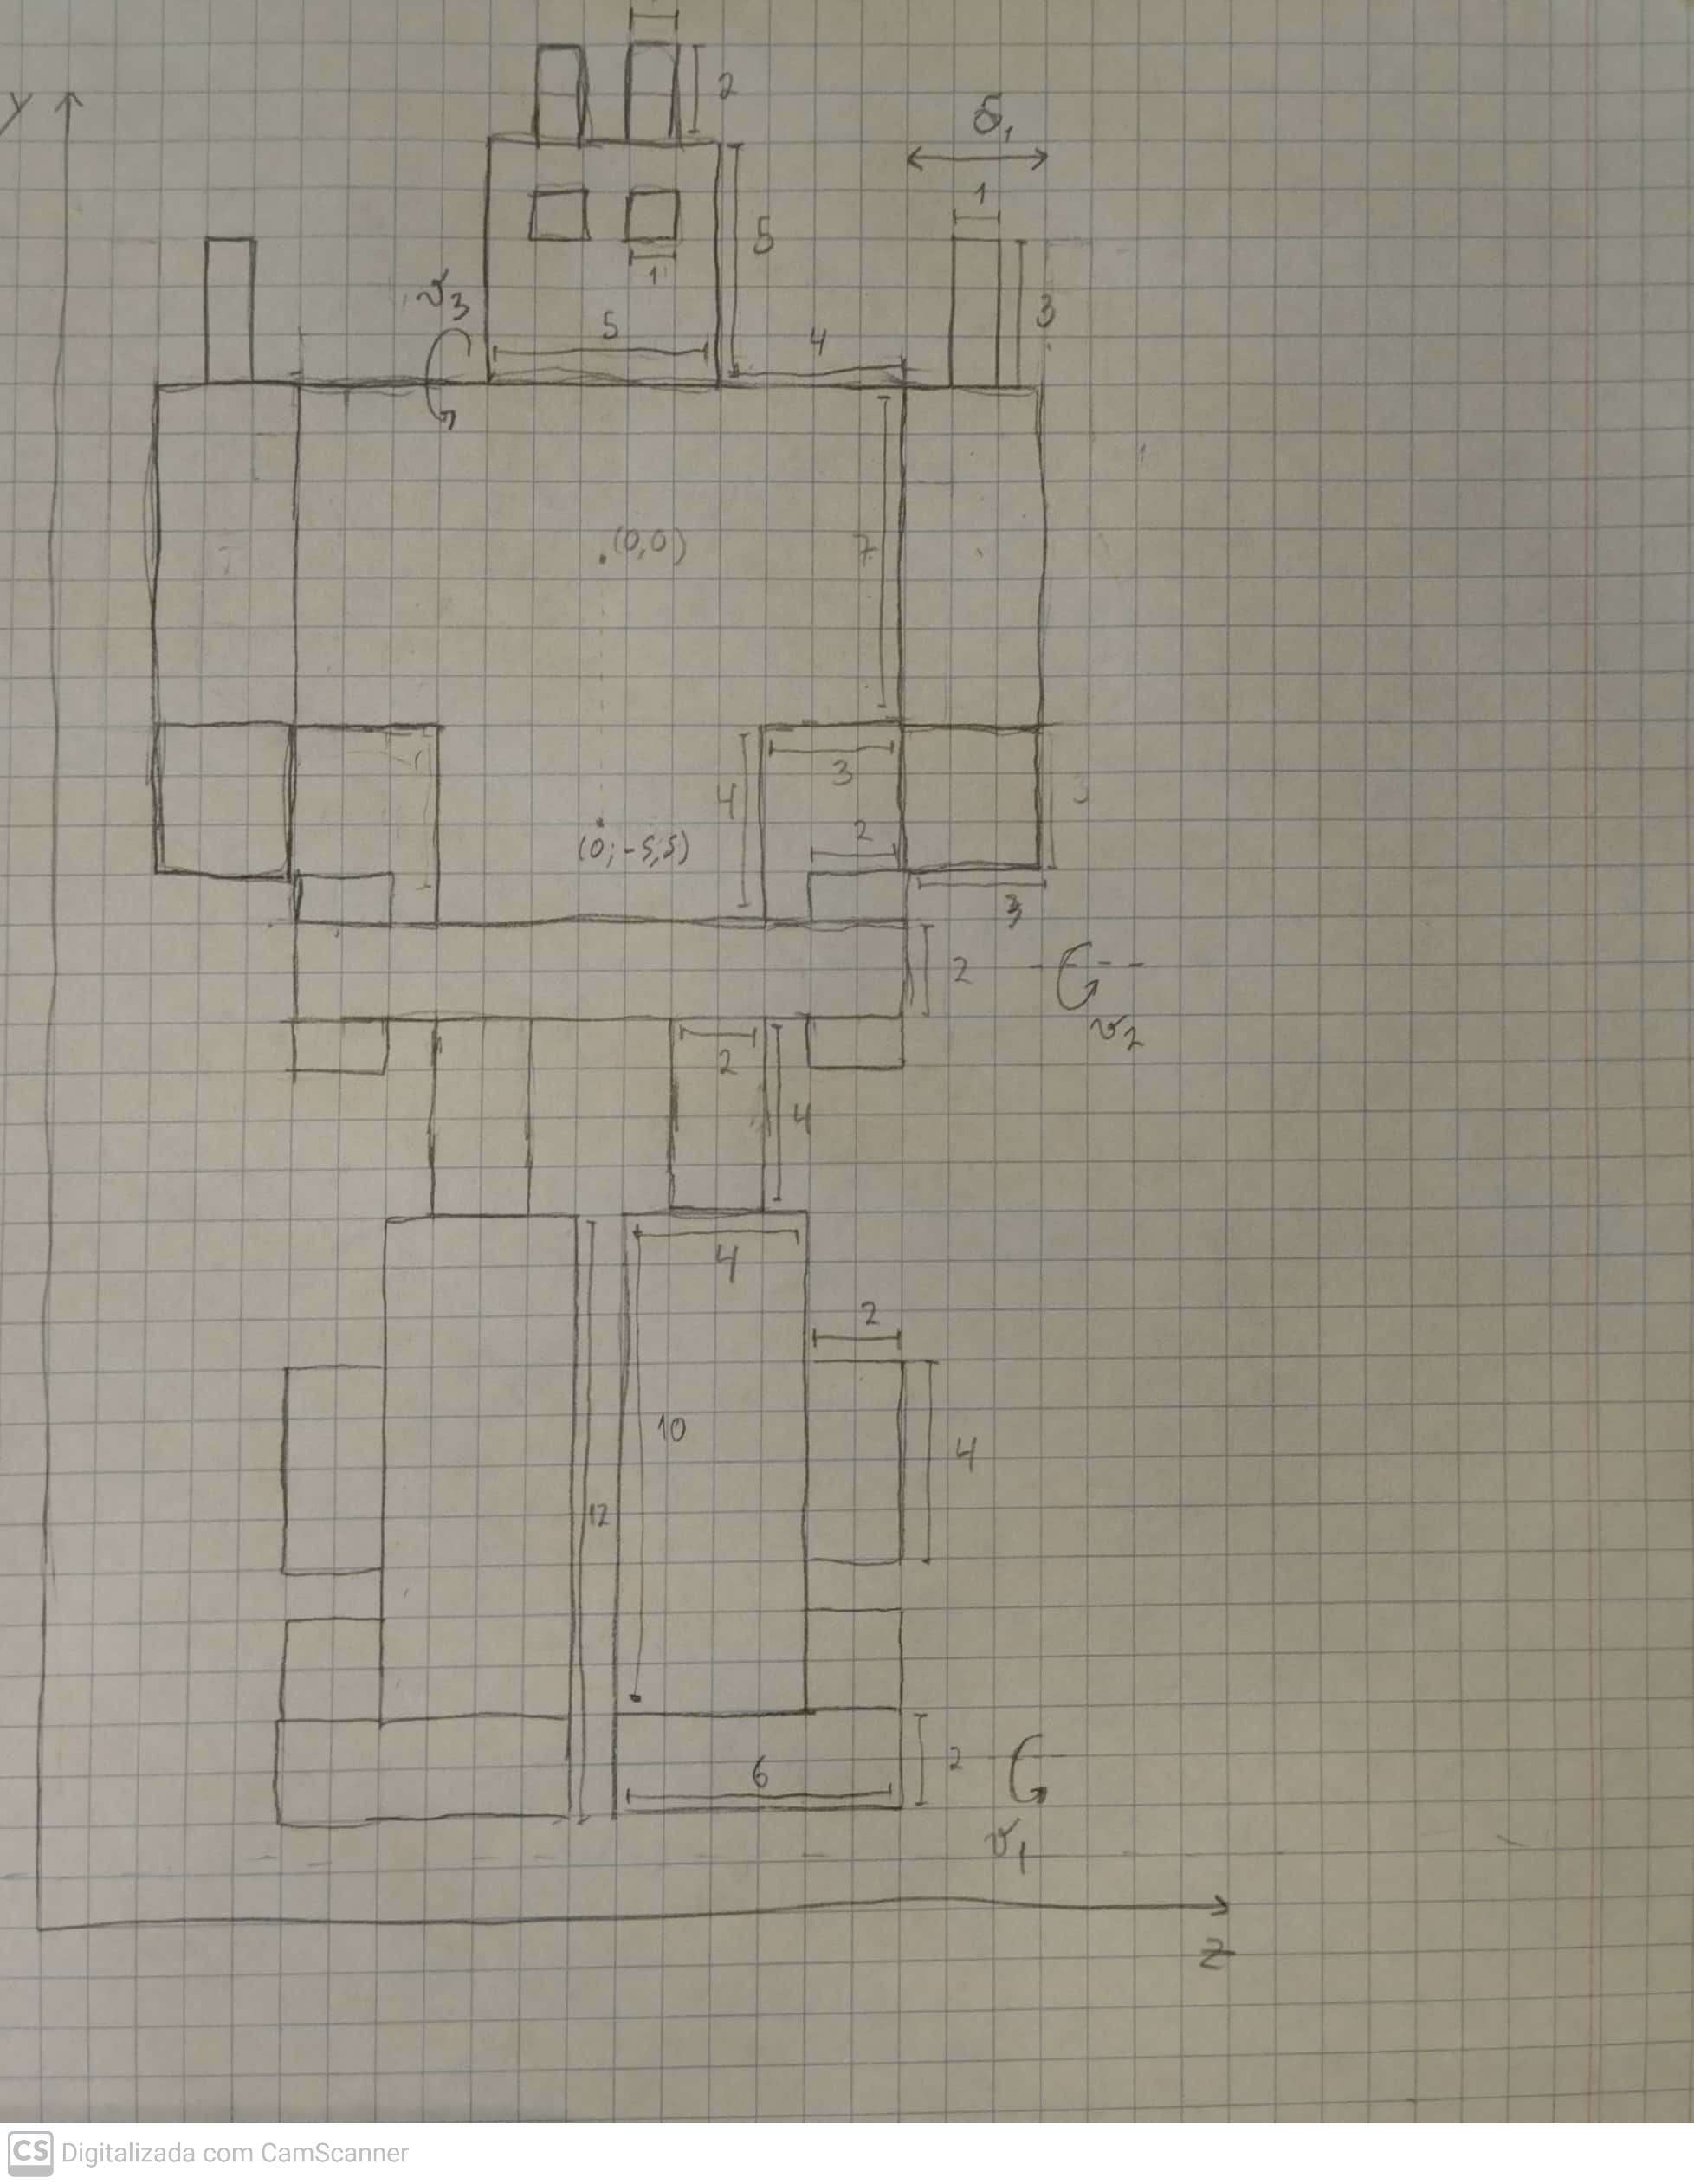 2
y
δ₁
1
5
1
θ₃
3
5
4
(0,0)
7
3
4
2
(0;-5,5)
3
2
θ₂
2
4
4
2
10
4
12
2
6
θ₁
z
CS Digitalizada com CamScanner